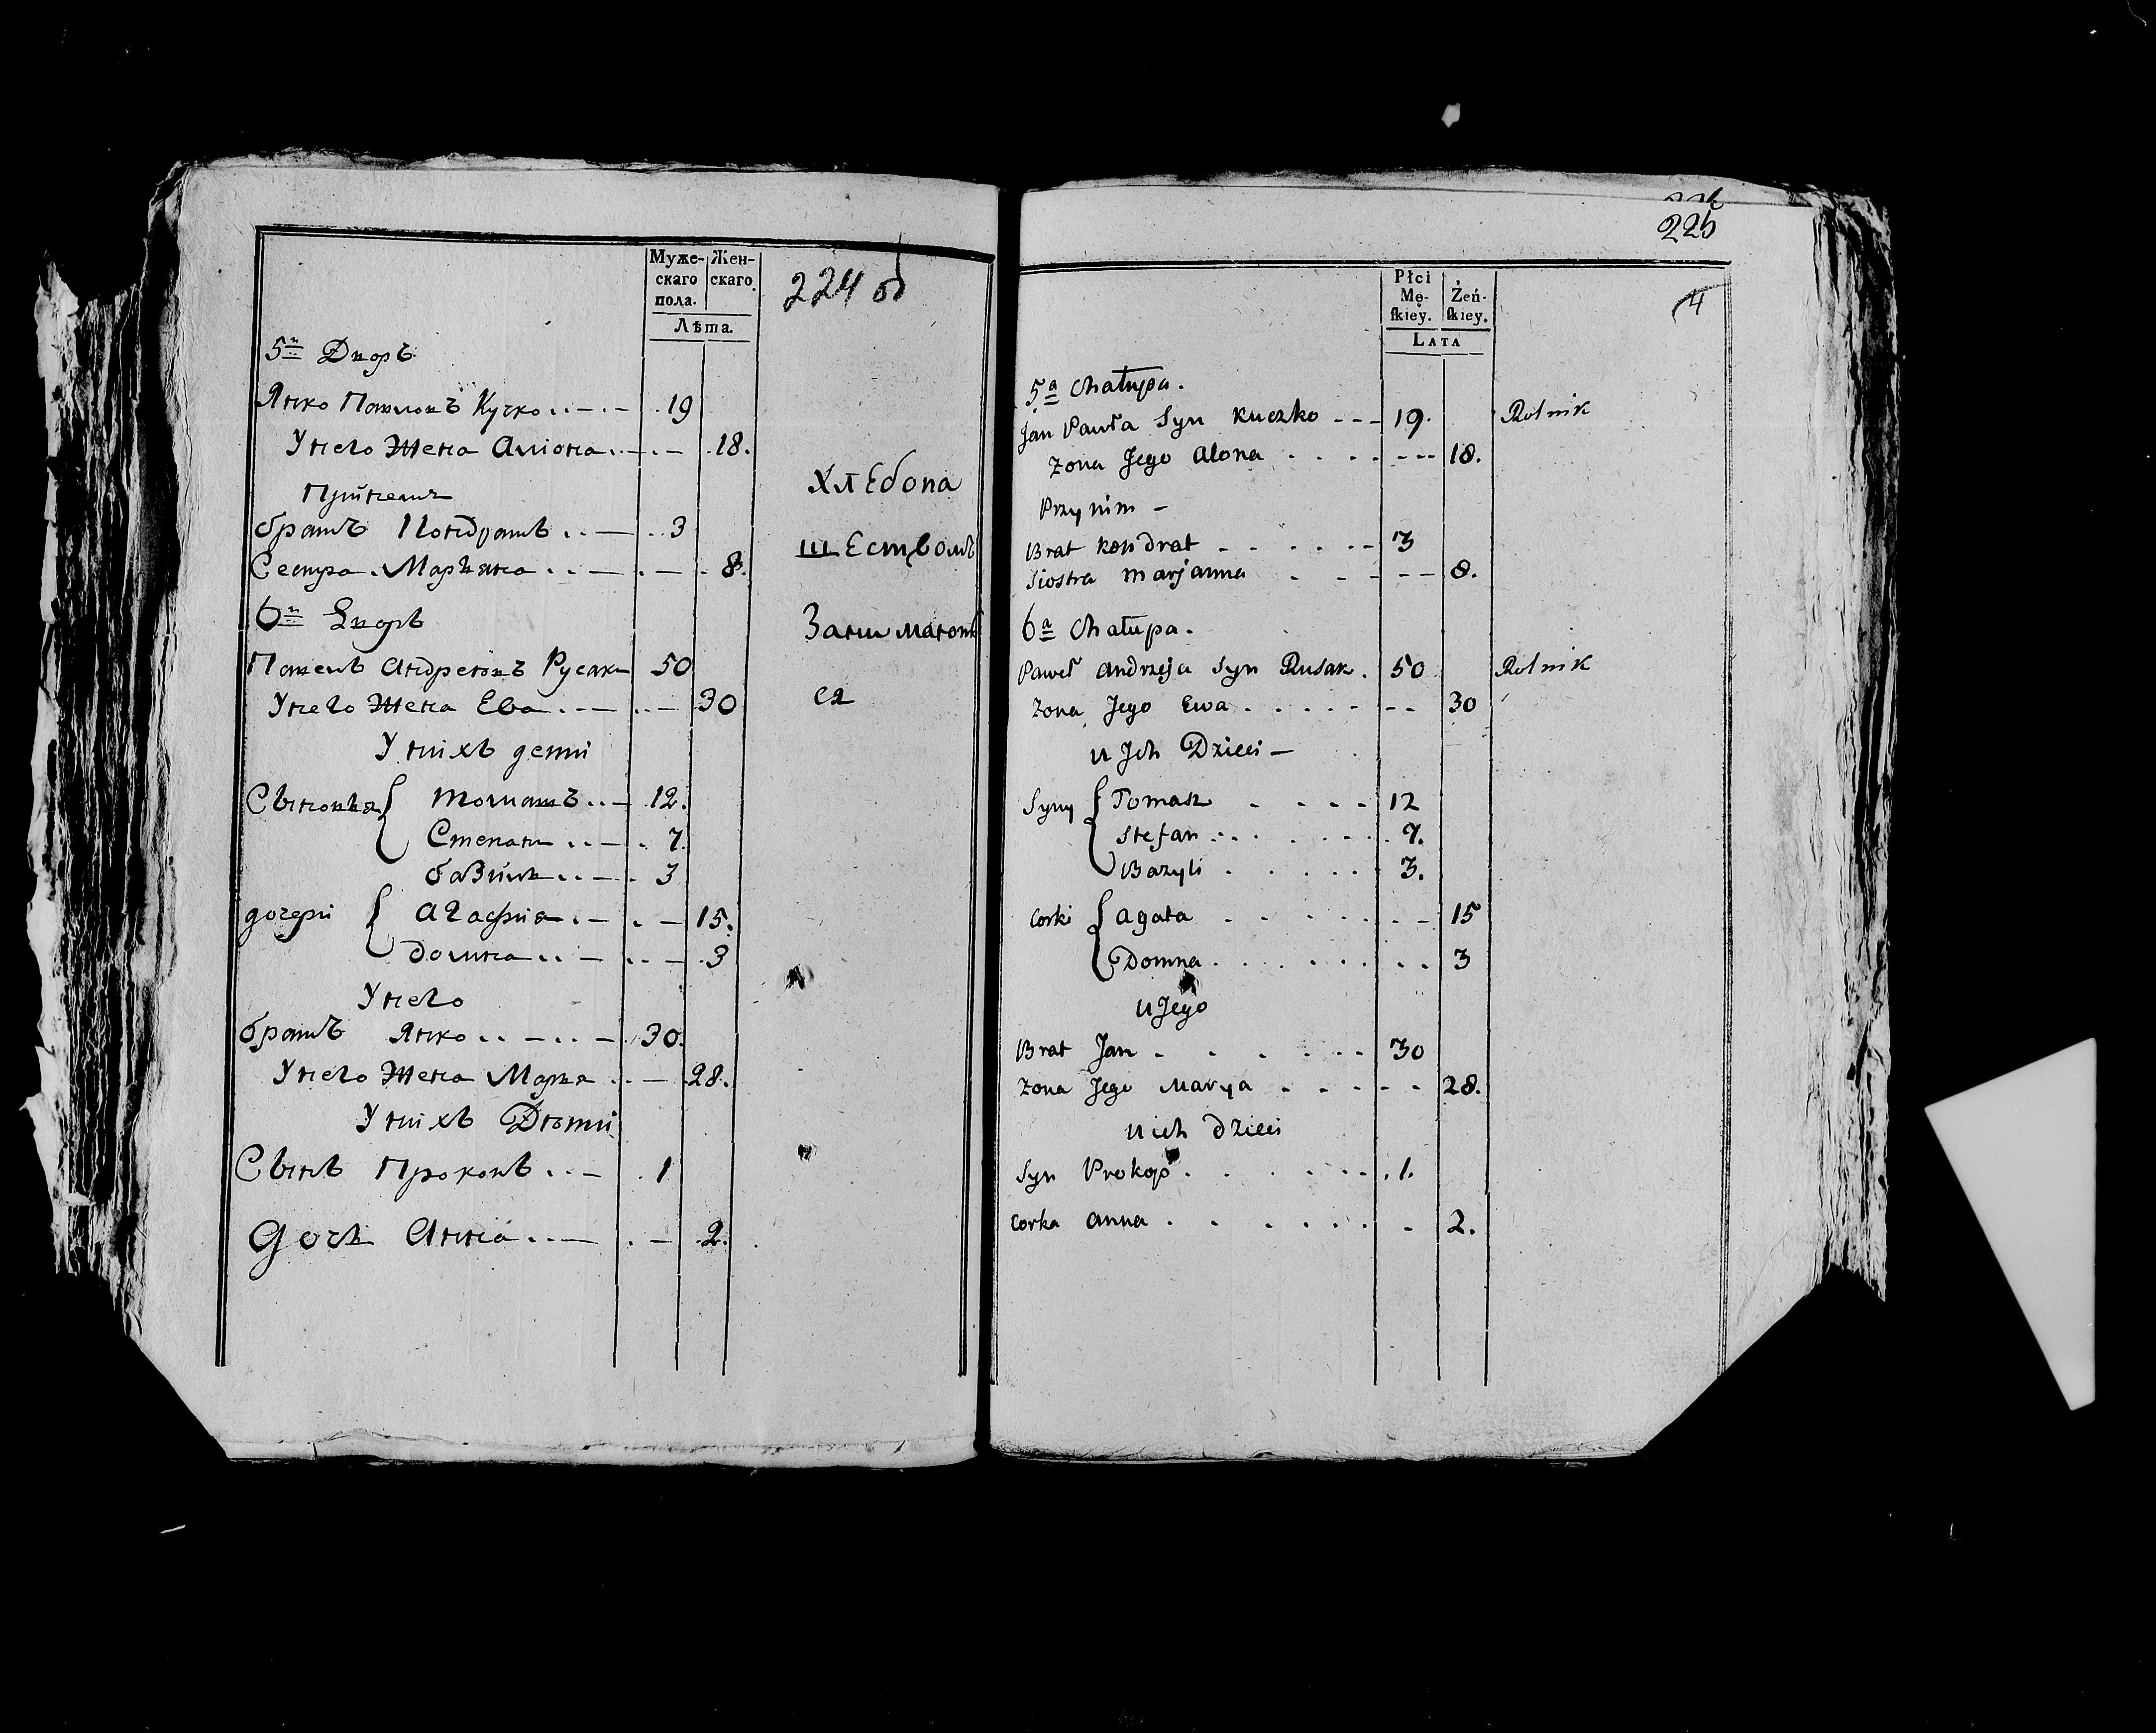 Муже-
скаго
пола.
Жен-
скаго.
Лѣта.
224 об
5й Дворъ
Янко Павловъ Кучко 19
У него Жена Алюна 18.
При немъ
братъ Кондратъ 3
Сестра Марьяна 8.
6й Дворъ
Павелъ Андреювъ Русакъ 50
У него Жена Ева 30
У нихъ дети
Сыновья { Томашъ 12.
Степанъ 7.
базиль 3
дочери { Агафия 15.
Домна 3
У него
братъ Янко 30.
У него Жена Марья 28.
У нихъ Дѣти
Сынъ Прокопъ 1
Дочь Анна 2.
Хлебопа
шествомъ
Занимаютъ
ся
225
4
Płci
Mę-
skiey.
Żeń-
skiey.
LATA
5a Chałupa.
Jan Pawła Syn Kuczko 19. Rolnik
Zona Jego Alona 18.
Przy nim
Brat Kondrat 3
Siostra Marjanna 8.
6a Chałupa.
Paweł Andrzeja Syn Rusak. 50 Rolnik
Zona Jego Ewa 30
u Jch Dzieci
Syny { Tomasz 12
Stefan 7.
Bazyli 3.
Corki { Agata 15
Domna 3
u Jego
Brat Jan 30
Zona Jego Marya 28.
u ich dzieci
Syn Prokop 1.
Corka Anna 2.